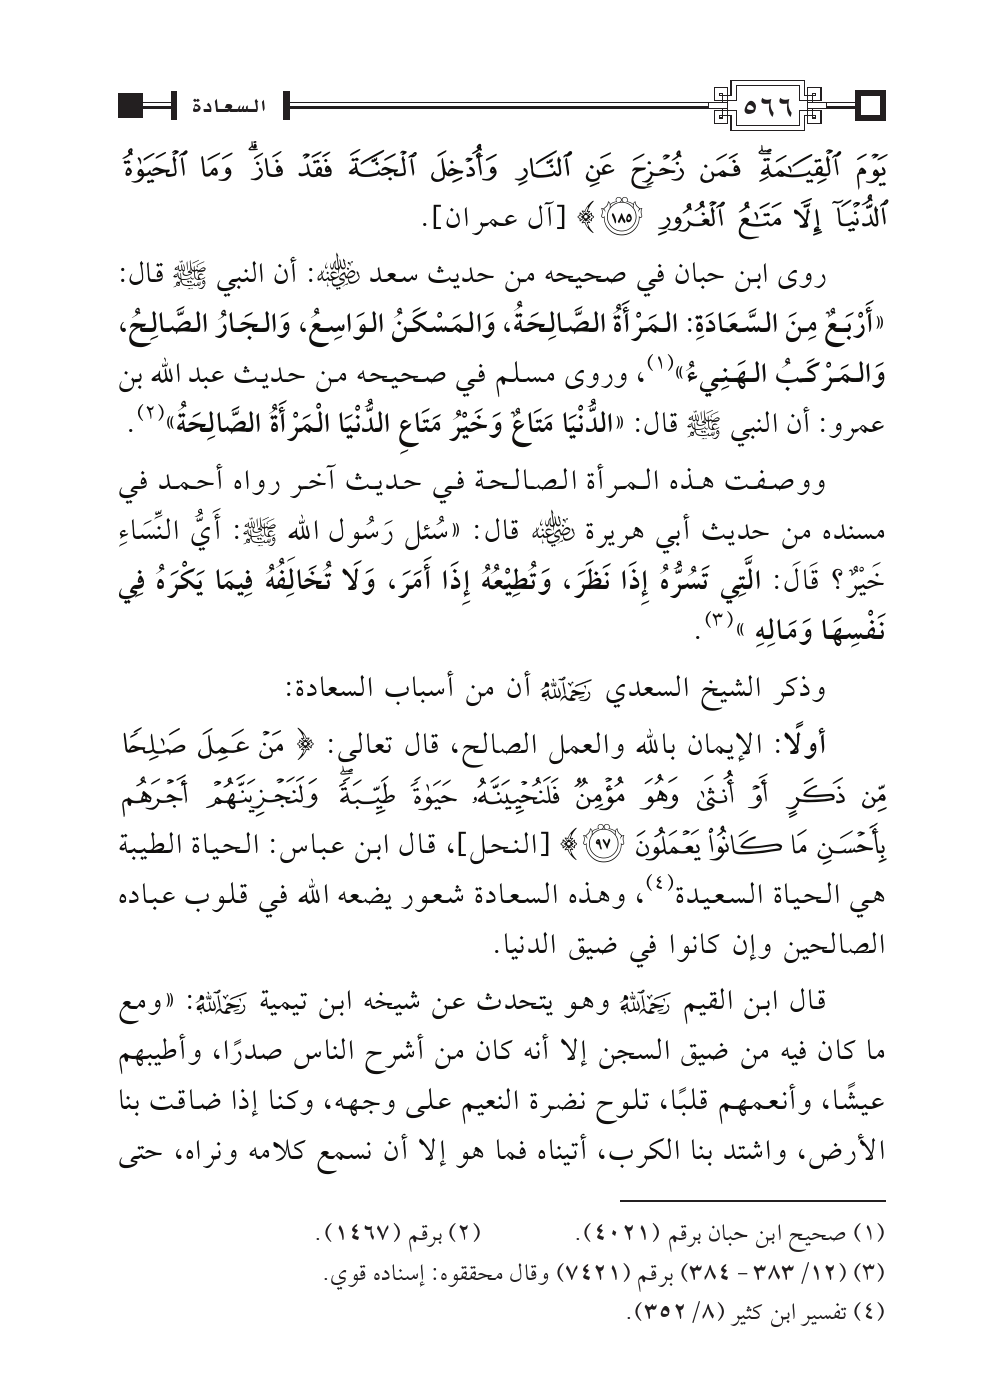 ٥٦٦
السعادة
يَوْمَ ٱلْقِيَـٰمَةِ ۖ فَمَن زُحْزِحَ عَنِ ٱلنَّارِ وَأُدْخِلَ ٱلْجَنَّةَ فَقَدْ فَازَ ۗ وَمَا ٱلْحَيَوٰةُ
ٱلدُّنْيَآ إِلَّا مَتَـٰعُ ٱلْغُرُورِ ۝١٨٥ ﴾ [آل عمران].
روى ابن حبان في صحيحه من حديث سعد رضي الله عنه: أن النبي ﷺ قال:
«أَرْبَعٌ مِنَ السَّعَادَةِ: المَرْأَةُ الصَّالِحَةُ، وَالمَسْكَنُ الوَاسِعُ، وَالجَارُ الصَّالِحُ،
وَالمَرْكَبُ الهَنِيءُ»(١)، وروى مسلم في صحيحه من حديث عبد الله بن
عمرو: أن النبي ﷺ قال: «الدُّنْيَا مَتَاعٌ وَخَيْرُ مَتَاعِ الدُّنْيَا الْمَرْأَةُ الصَّالِحَةُ»(٢).
ووصفت هذه المرأة الصالحة في حديث آخر رواه أحمد في
مسنده من حديث أبي هريرة رضي الله عنه قال: «سُئل رَسُول الله ﷺ: أَيُّ النِّسَاءِ
خَيْرٌ؟ قَالَ: الَّتِي تَسُرُّهُ إِذَا نَظَرَ، وَتُطِيْعُهُ إِذَا أَمَرَ، وَلَا تُخَالِفُهُ فِيمَا يَكْرَهُ فِي
نَفْسِهَا وَمَالِهِ »(٣).
وذكر الشيخ السعدي رحمه الله أن من أسباب السعادة:
أولًا: الإيمان بالله والعمل الصالح، قال تعالى: ﴿ مَنْ عَمِلَ صَـٰلِحًا
مِّن ذَكَرٍ أَوْ أُنثَىٰ وَهُوَ مُؤْمِنٌ فَلَنُحْيِيَنَّهُۥ حَيَوٰةً طَيِّبَةً ۖ وَلَنَجْزِيَنَّهُمْ أَجْرَهُم
بِأَحْسَنِ مَا كَانُوا۟ يَعْمَلُونَ ۝٩٧ ﴾ [النحل]، قال ابن عباس: الحياة الطيبة
هي الحياة السعيدة(٤)، وهذه السعادة شعور يضعه الله في قلوب عباده
الصالحين وإن كانوا في ضيق الدنيا.
قال ابن القيم رحمه الله وهو يتحدث عن شيخه ابن تيمية رحمه الله: «ومع
ما كان فيه من ضيق السجن إلا أنه كان من أشرح الناس صدرًا، وأطيبهم
عيشًا، وأنعمهم قلبًا، تلوح نضرة النعيم على وجهه، وكنا إذا ضاقت بنا
الأرض، واشتد بنا الكرب، أتيناه فما هو إلا أن نسمع كلامه ونراه، حتى
(١) صحيح ابن حبان برقم (٤٠٢١). (٢) برقم (١٤٦٧).
(٣) (١٢/ ٣٨٣ - ٣٨٤) برقم (٧٤٢١) وقال محققوه: إسناده قوي.
(٤) تفسير ابن كثير (٨/ ٣٥٢).